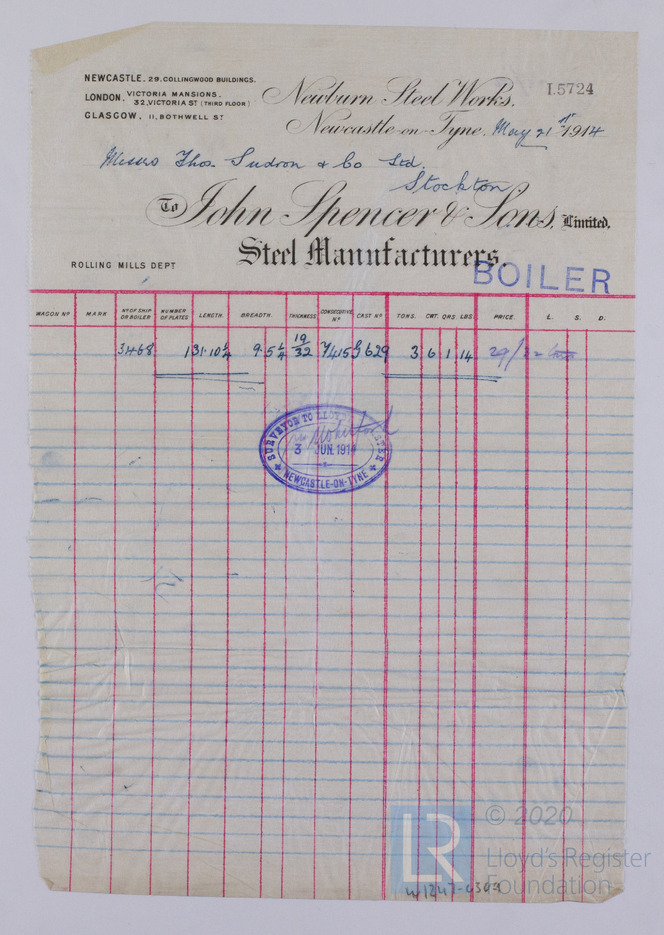 NEWCASTLE. 29. COLLINGWOOD BUILDINGS.
LONDON. VICTORIA MANSIONS. 32. VICTORIA ST (THIRD FLOOR)
GLASGOW. 11, BOTHWELL ST
I.5724
Newburn Steel Works.
Newcastle-on-Tyne. May 21st 1914
Messrs Thos. Sudron & Co Ltd.
Stockton
To John Spencer & Sons, Limited.
Steel Manufacturers.
ROLLING MILLS DEPT
BOILER
WAGON No MARK No OF SHIP OR BOILER NUMBER OF PLATES LENGTH. BREADTH. THICKNESS CONSECUTIVE No CAST No TONS. CWT. QRS LBS PRICE. £. S. D.
3468 1 31.10¼ 9.5¼ 19/32 3 6 1 14
SURVEYOR TO LLOYD'S
3 JUN. 1914
NEWCASTLE-ON-TYNE
LR
© 2020
Lloyd's Register
Foundation